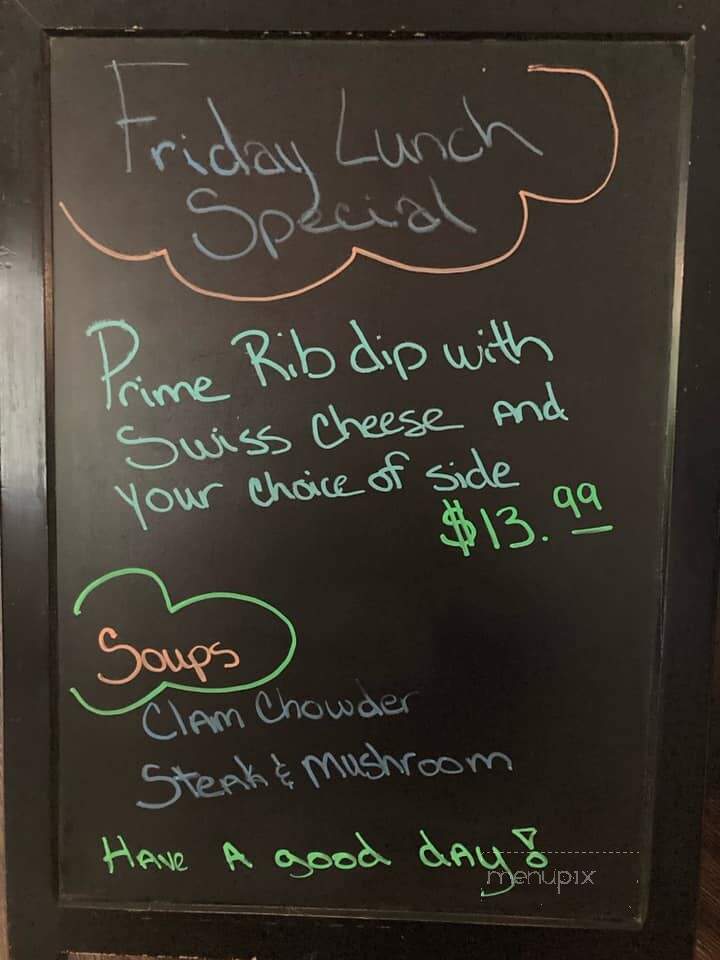 Friday Lunch
Special
Prime Rib dip with
Swiss Cheese and
your choice of side
$13.99
Soups
Clam Chowder
Steak & Mushroom
Have A good day!
menupix